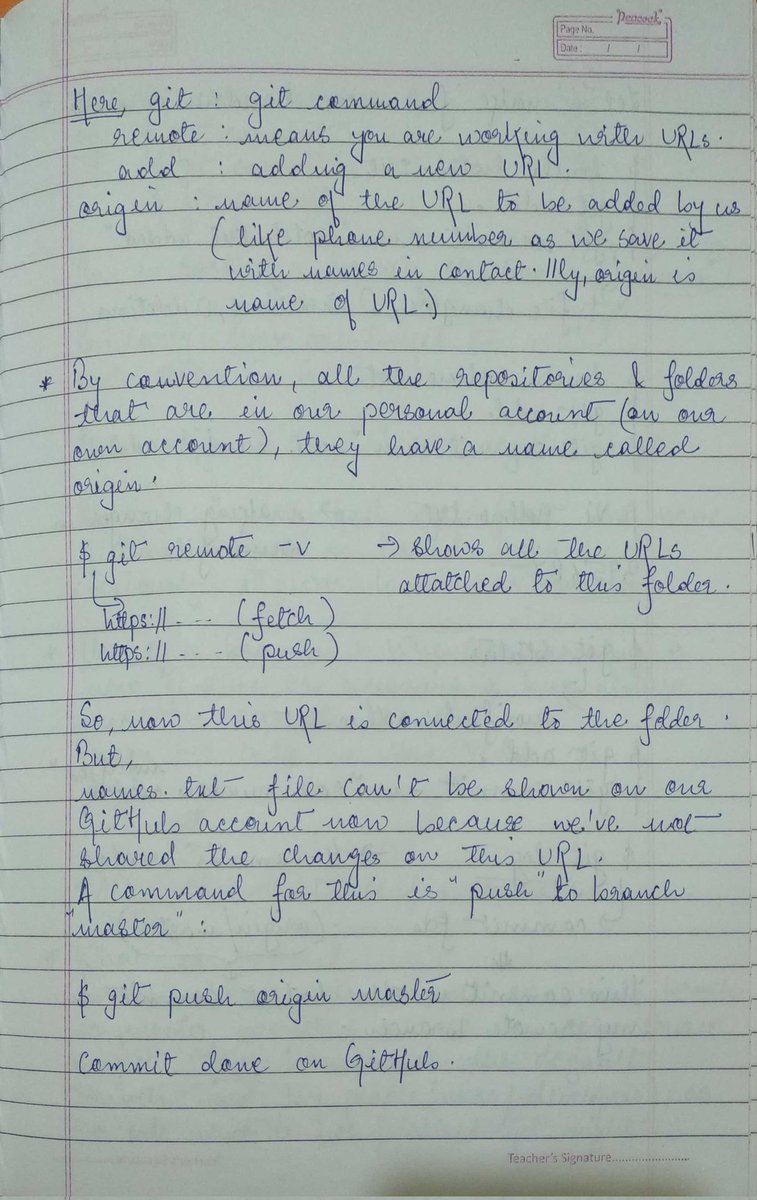 Peacock
Page No.
Date : / /
Here, git : git command
remote : means you are working with URLs.
add : adding a new URL.
origin : name of the URL to be added by us
(like phone number as we save it
with names in contact. llly, origin is
name of URL.)
* By convention, all the repositories & folders
that are in our personal account (on our
own account), they have a name called
origin.
$ git remote -v → shows all the URLs
attatched to this folder.
https:// --- (fetch)
https:// --- (push)
So, now this URL is connected to the folder.
But,
names.txt file can't be shown on our
GitHub account now because we've not
shared the changes on this URL.
A command for this is "push" to branch
"master" :
$ git push origin master
Commit done on GitHub.
Teacher's Signature..........................